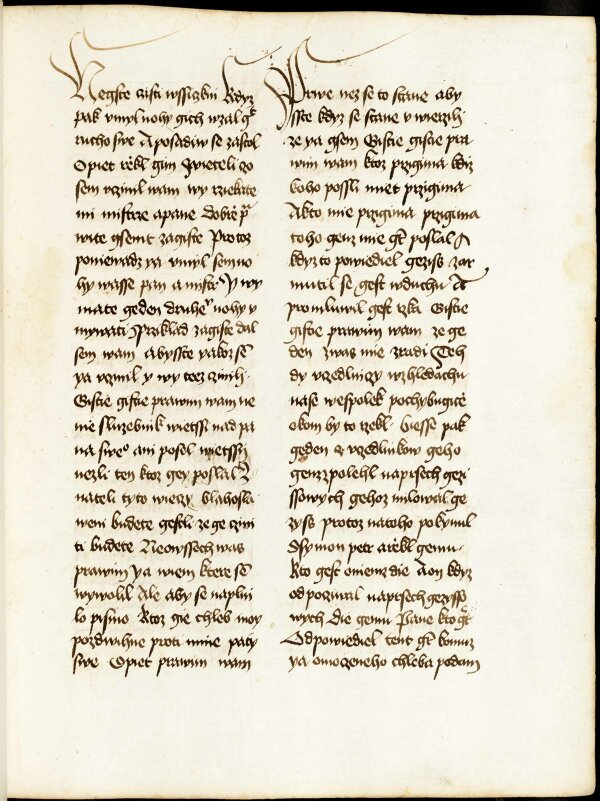 Negste czisti wssiczkni Kdyz
pak vmyl nohy gich wzal gt
rucho swe A posadiw se zasiel
Opiet rzekl gim Zwieteli czo
sem vczinil wam wy rziekate
mi mistrze a pane dobrze pra
wite gsemt zagiste Protoz
poniewadz ya vmyl sem no
hy wasse pan a mistr Y wy
mate geden druheo nohy v
mywati Przyklad zagiste dal
sem wam abysste yakoz se
ya vczinil y wy teez czinili
Gistie gistie prawim wam ne
nie sluzebnik wietssi nad pa
na sweo ani posel wietssy
nezli ten ktoz gey poslal Z
nateli tyto wieczy blahosla
weni budete gestli ze ge czini
ti budete Ne o wssech was
prawim Ya wiem ktere se
wywolil Ale aby se naplni
lo pismo Ktoz gie chleb moy
pozdwihne proti mnie paty
swe Opiet prawim wam
Prwe nez se to stane aby
sste kdyz se stane vwierzili
ze ya gsem Gistie gistie pra
wim wam ktoz przigima kdiz
koho possli mnet przigima
A kto mie przigima przigima
toho genz mie gt poslal A
kdyz to powiediel geziss zar
mutil se gest w duchu A
promluwil gest rzka Gistie
gistie prawim wam ze ge
den z was mie zradi Teh
dy vczedlniczy wzhledachu
nase wespolek pochybugicze
o kom by to rzekl Biesse pak
geden z vczedlnikow geho
genz zpolehl na prsech gezi
ssowych gehoz milowal ge
zyss protoz na toho pokynul
Ssymon petr a rzekl gemu
Kto gest o niemz die A on kdyz
odpoczinul na prsech gezysso
wych die gemu Pane kto gt
Odpowiediel tent gt komuz
ya omoczeneho chleba podam